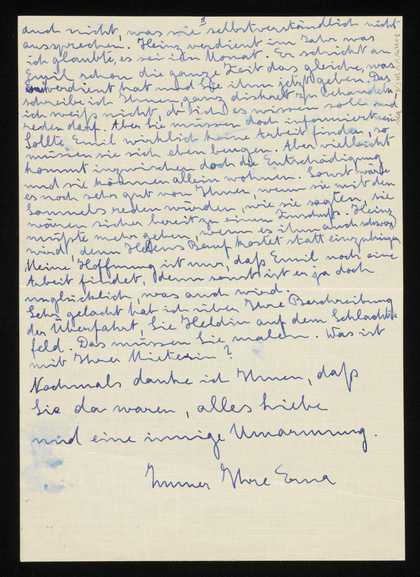 auch nicht, was sie selbstverständlich nicht
aussprechen. Heinz verdient im Jahr was
ich glaubte, es sei im Monat. Er schickt an
Emil schon die ganze Zeit das gleiche, was
verdient hat und sie ihm jetzt geben. Das
schreibe ich Ihnen ganz diskret zu behandeln,
ich weiß nicht, ob ich es wissen soll und
reden darf. Aber Sie müssen doch informiert sein.
Sollte Emil wirklich keine Arbeit finden, so
müssen sie sich eben beugen. Aber vielleicht
kommt inzwischen doch die Entschädigung
und sie können allein wohnen. Sonst wäre
es noch sehr gut von Ihnen, wenn sie mit den
Sammels reden würden, wie sie sagten, sie
wären sicher bereit zu einem Zuschuß. Heinz
müßte mehr geben, wenn es ihm auch schwer
wird, denn Helens Beruf kostet statt einzubringen
Meine Hoffnung ist nur, daß Emil noch eine
Arbeit findet, denn sonst ist er ja doch
unglücklich, was auch wird.
Sehr gelacht hab ich über Ihre Beschreibung
der Überfahrt, Sie Heldin auf dem Schlacht-
feld. Das müssen Sie malen. Was ist
mit Ihrer Mieterin?
Nochmals danke ich Ihnen, daß
Sie da waren, alles Liebe
und eine innige Umarmung.
Immer Ihre Erna